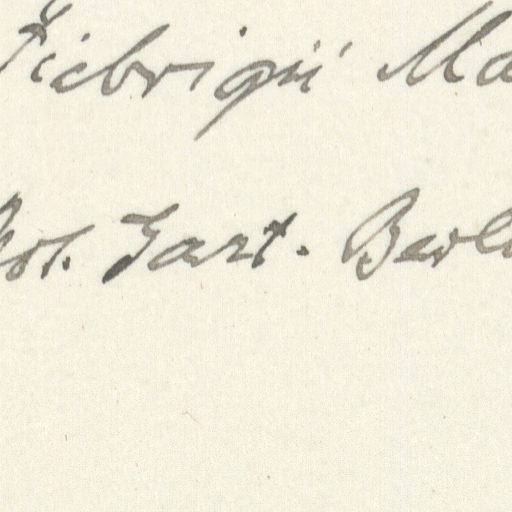 Fiebrigii Ma
Bot. Gart. Berl